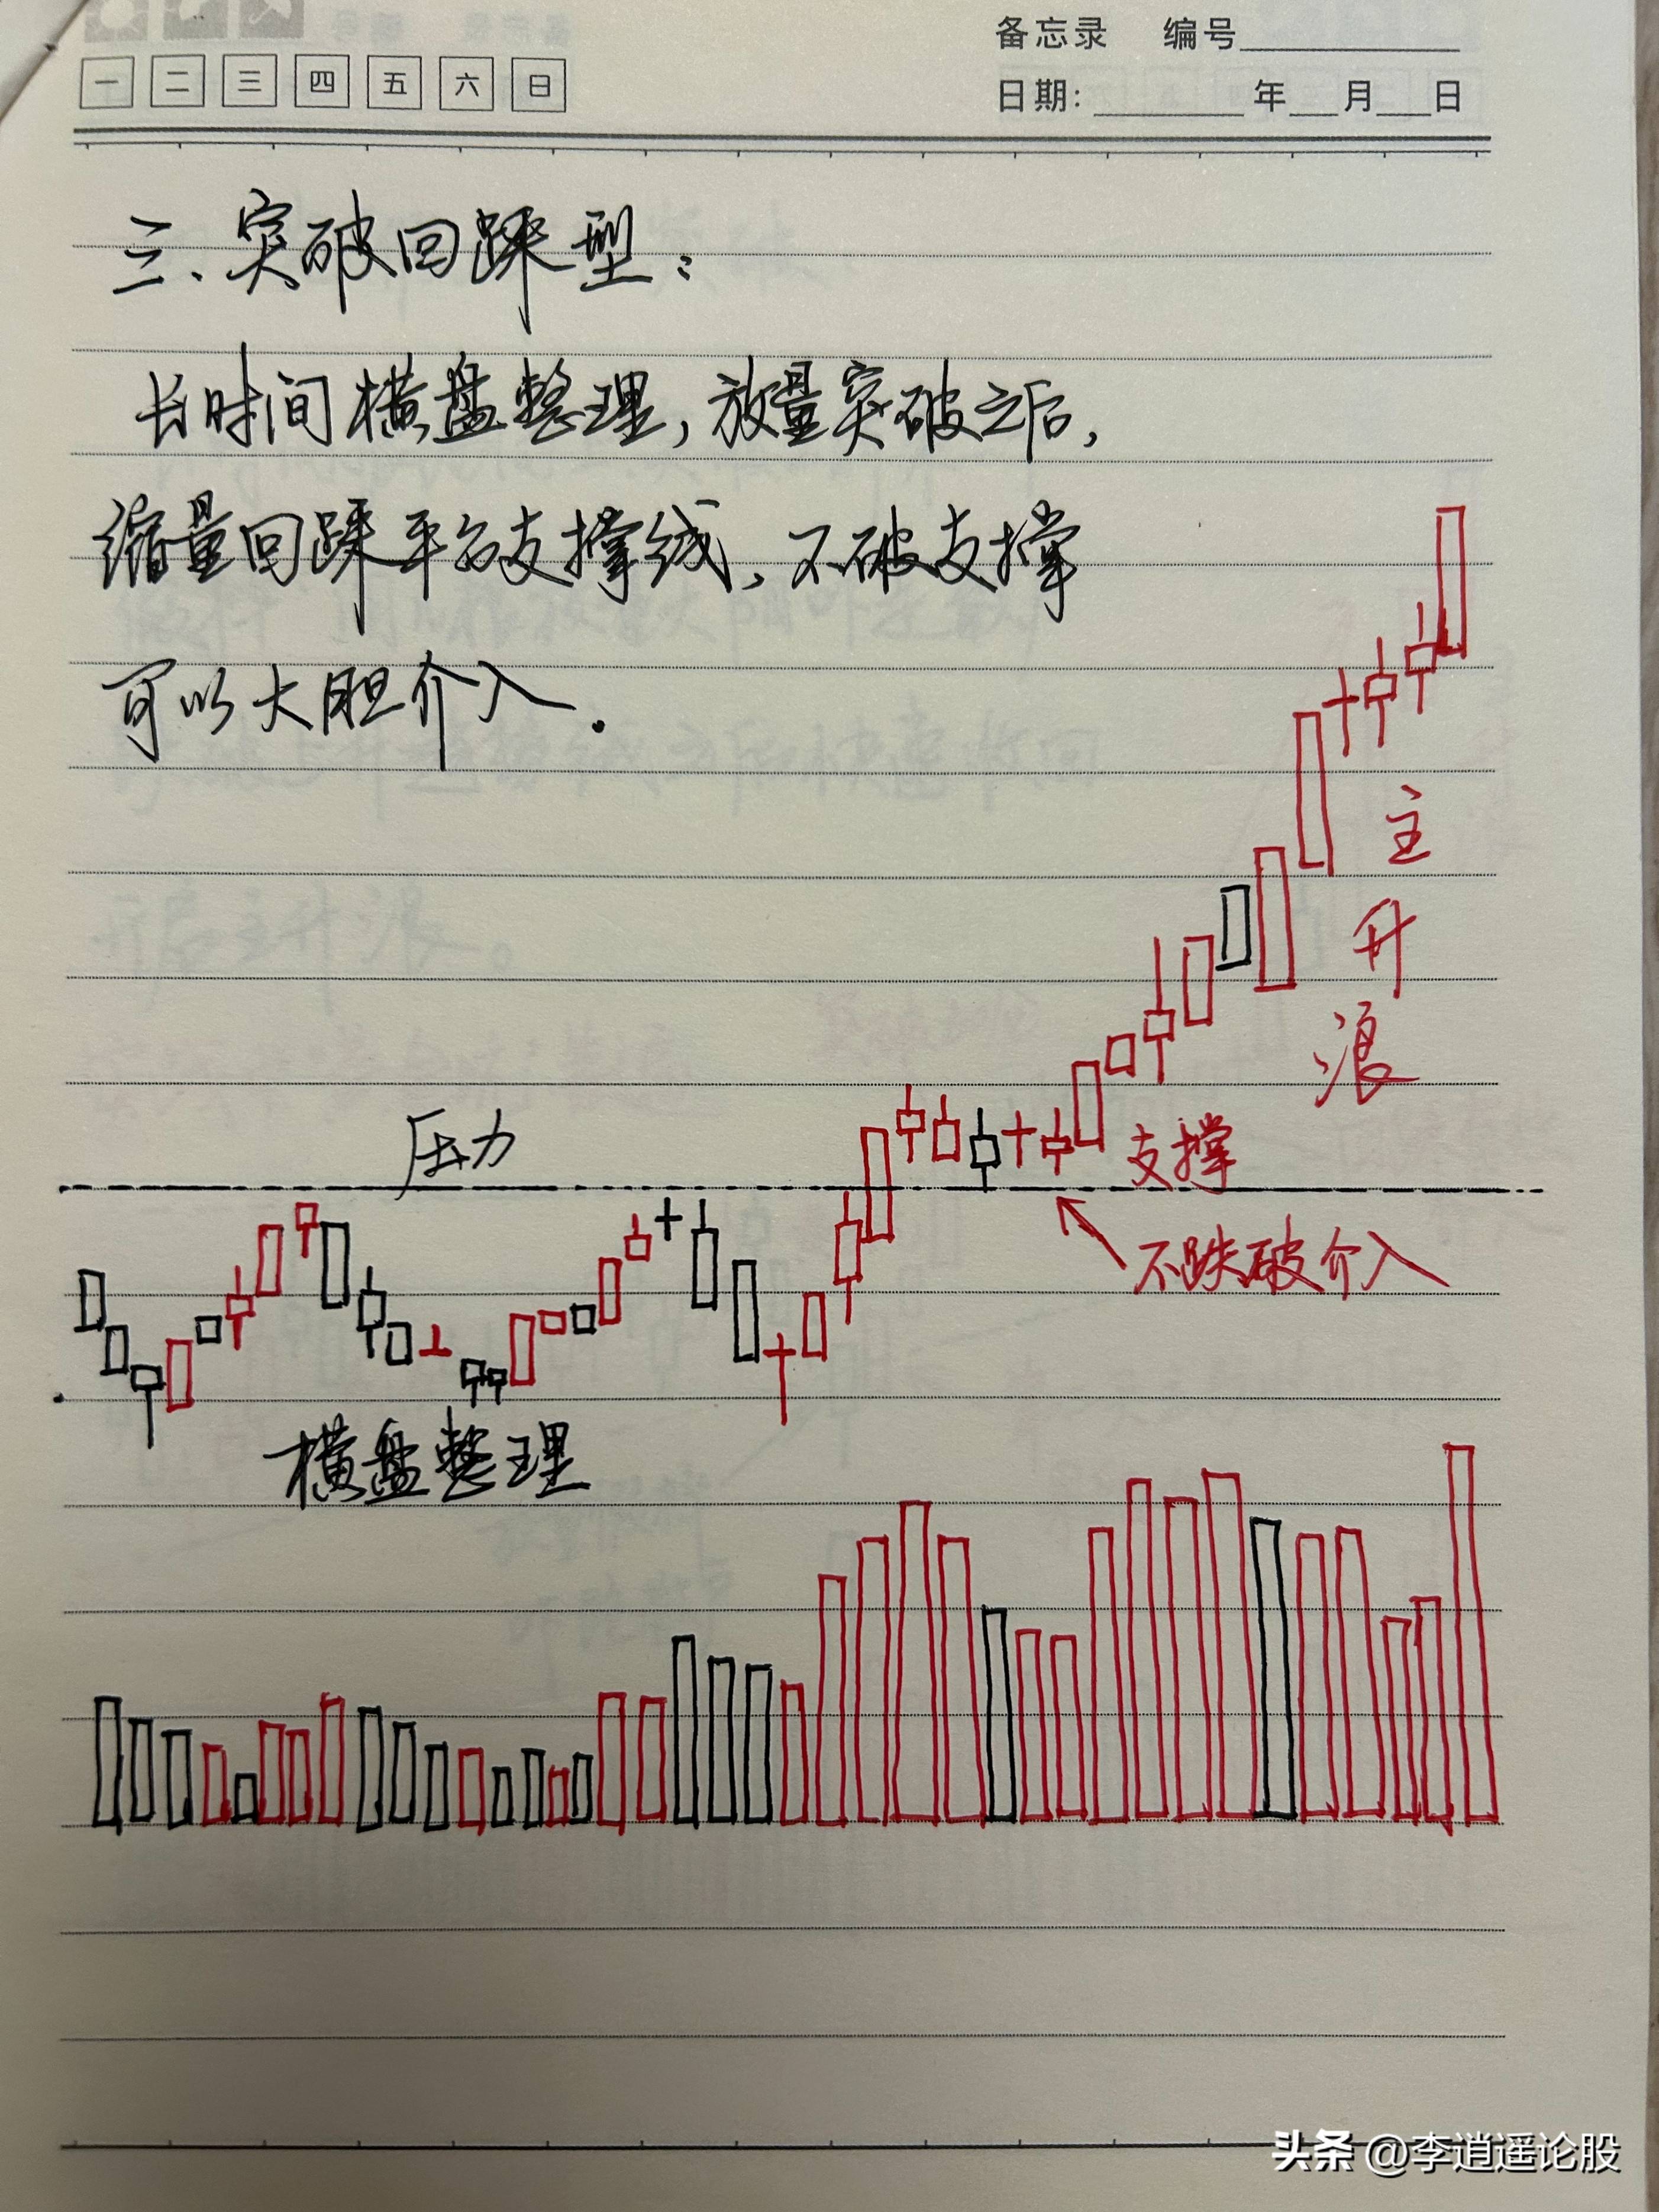 备忘录 编号
一 二 三 四 五 六 日
日期: 年 月 日
三、突破回踩型：
长时间横盘整理，放量突破之后，
缩量回踩平台支撑线、不破支撑
可以大胆介入．
主升浪
压力
支撑
不跌破介入
横盘整理
头条 @李逍遥论股